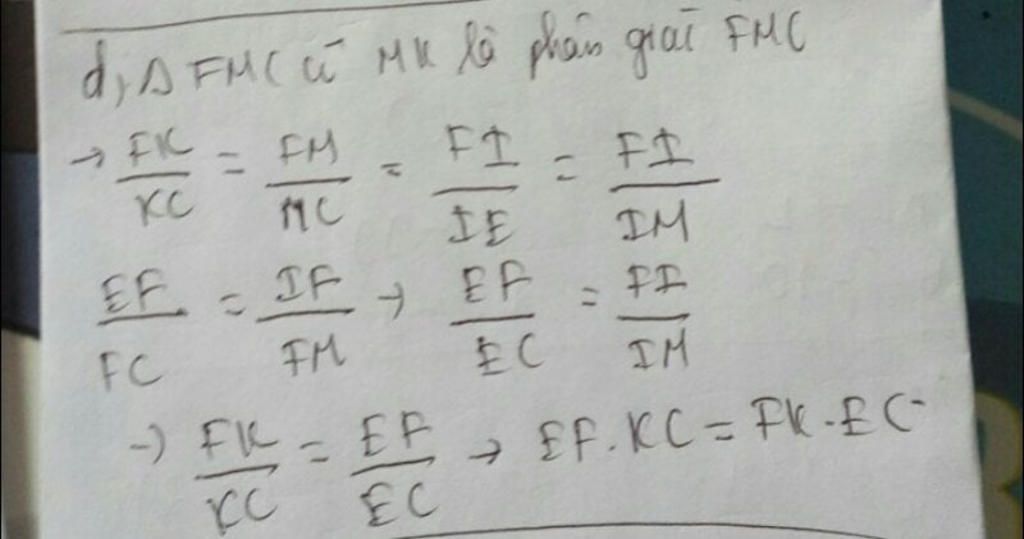 d, Δ FMC có MK là phân giác FMC
→ FK/KC = FM/MC = FI/IE = FI/IM
EF/FC = IF/FM → EF/EC = FI/IM
→ FK/KC = EF/EC → EF.KC = FK.EC